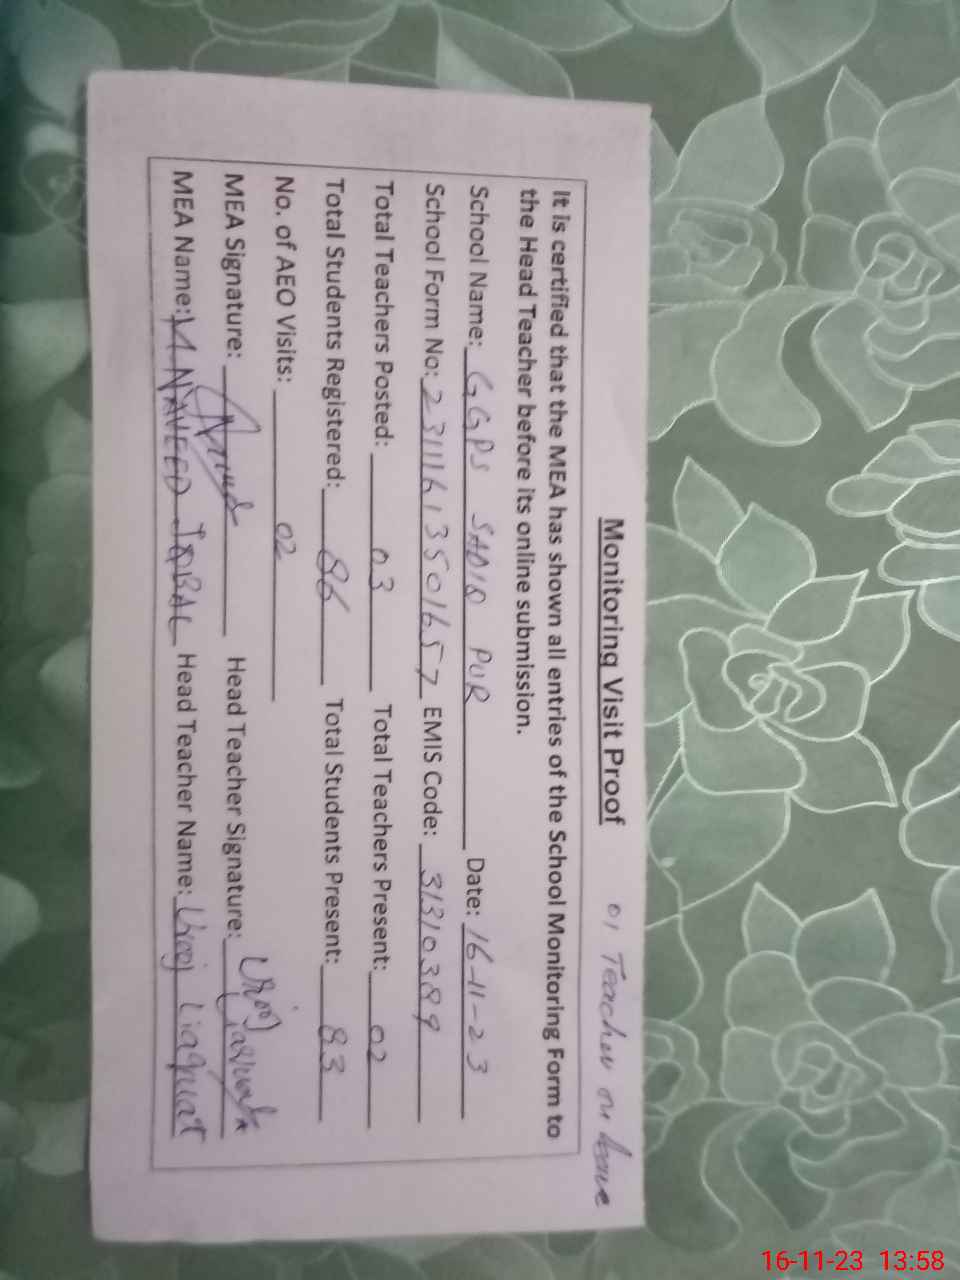 Monitoring Visit Proof
01 Teacher on leave
It is certified that the MEA has shown all entries of the School Monitoring Form to
the Head Teacher before its online submission.
School Name: GGPS SADIQ PUR Date: 16-11-23
School Form No: 23111613501657 EMIS Code: 31310389
Total Teachers Posted: 03 Total Teachers Present: 02
Total Students Registered: 86 Total Students Present: 83
No. of AEO Visits: 02
MEA Signature: Head Teacher Signature:
MEA Name: M NAVEED IQBAL Head Teacher Name: Urooj Liaquat
16-11-23 13:58